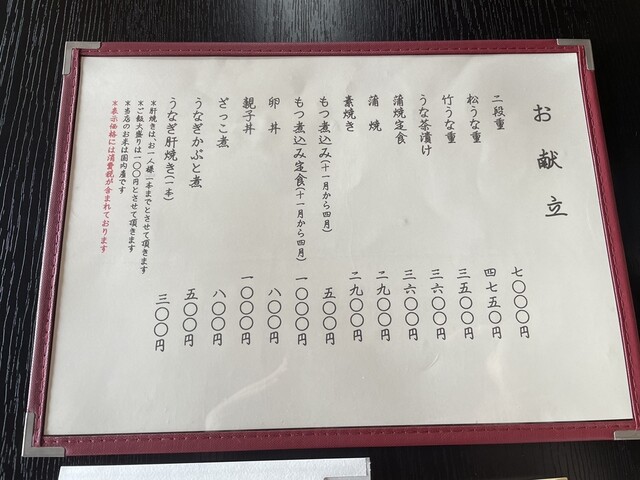 お献立
二段重 七〇〇〇円
松うな重 四七五〇円
竹うな重 三五〇〇円
うな茶漬け 三六〇〇円
蒲焼定食 三六〇〇円
蒲焼 二九〇〇円
素焼き 二九〇〇円
もつ煮込み(十一月から四月) 五〇〇円
もつ煮込み定食(十一月から四月) 一〇〇〇円
卵丼 八〇〇円
親子丼 一〇〇〇円
ざっこ煮 八〇〇円
うなぎかぶと煮 五〇〇円
うなぎ肝焼き(一本) 三〇〇円
*肝焼きはお一人様一本までとさせて頂きます
*ご飯大盛りは一〇〇円とさせて頂きます
*当店のお米は国内産です
*表示価格には消費税が含まれております